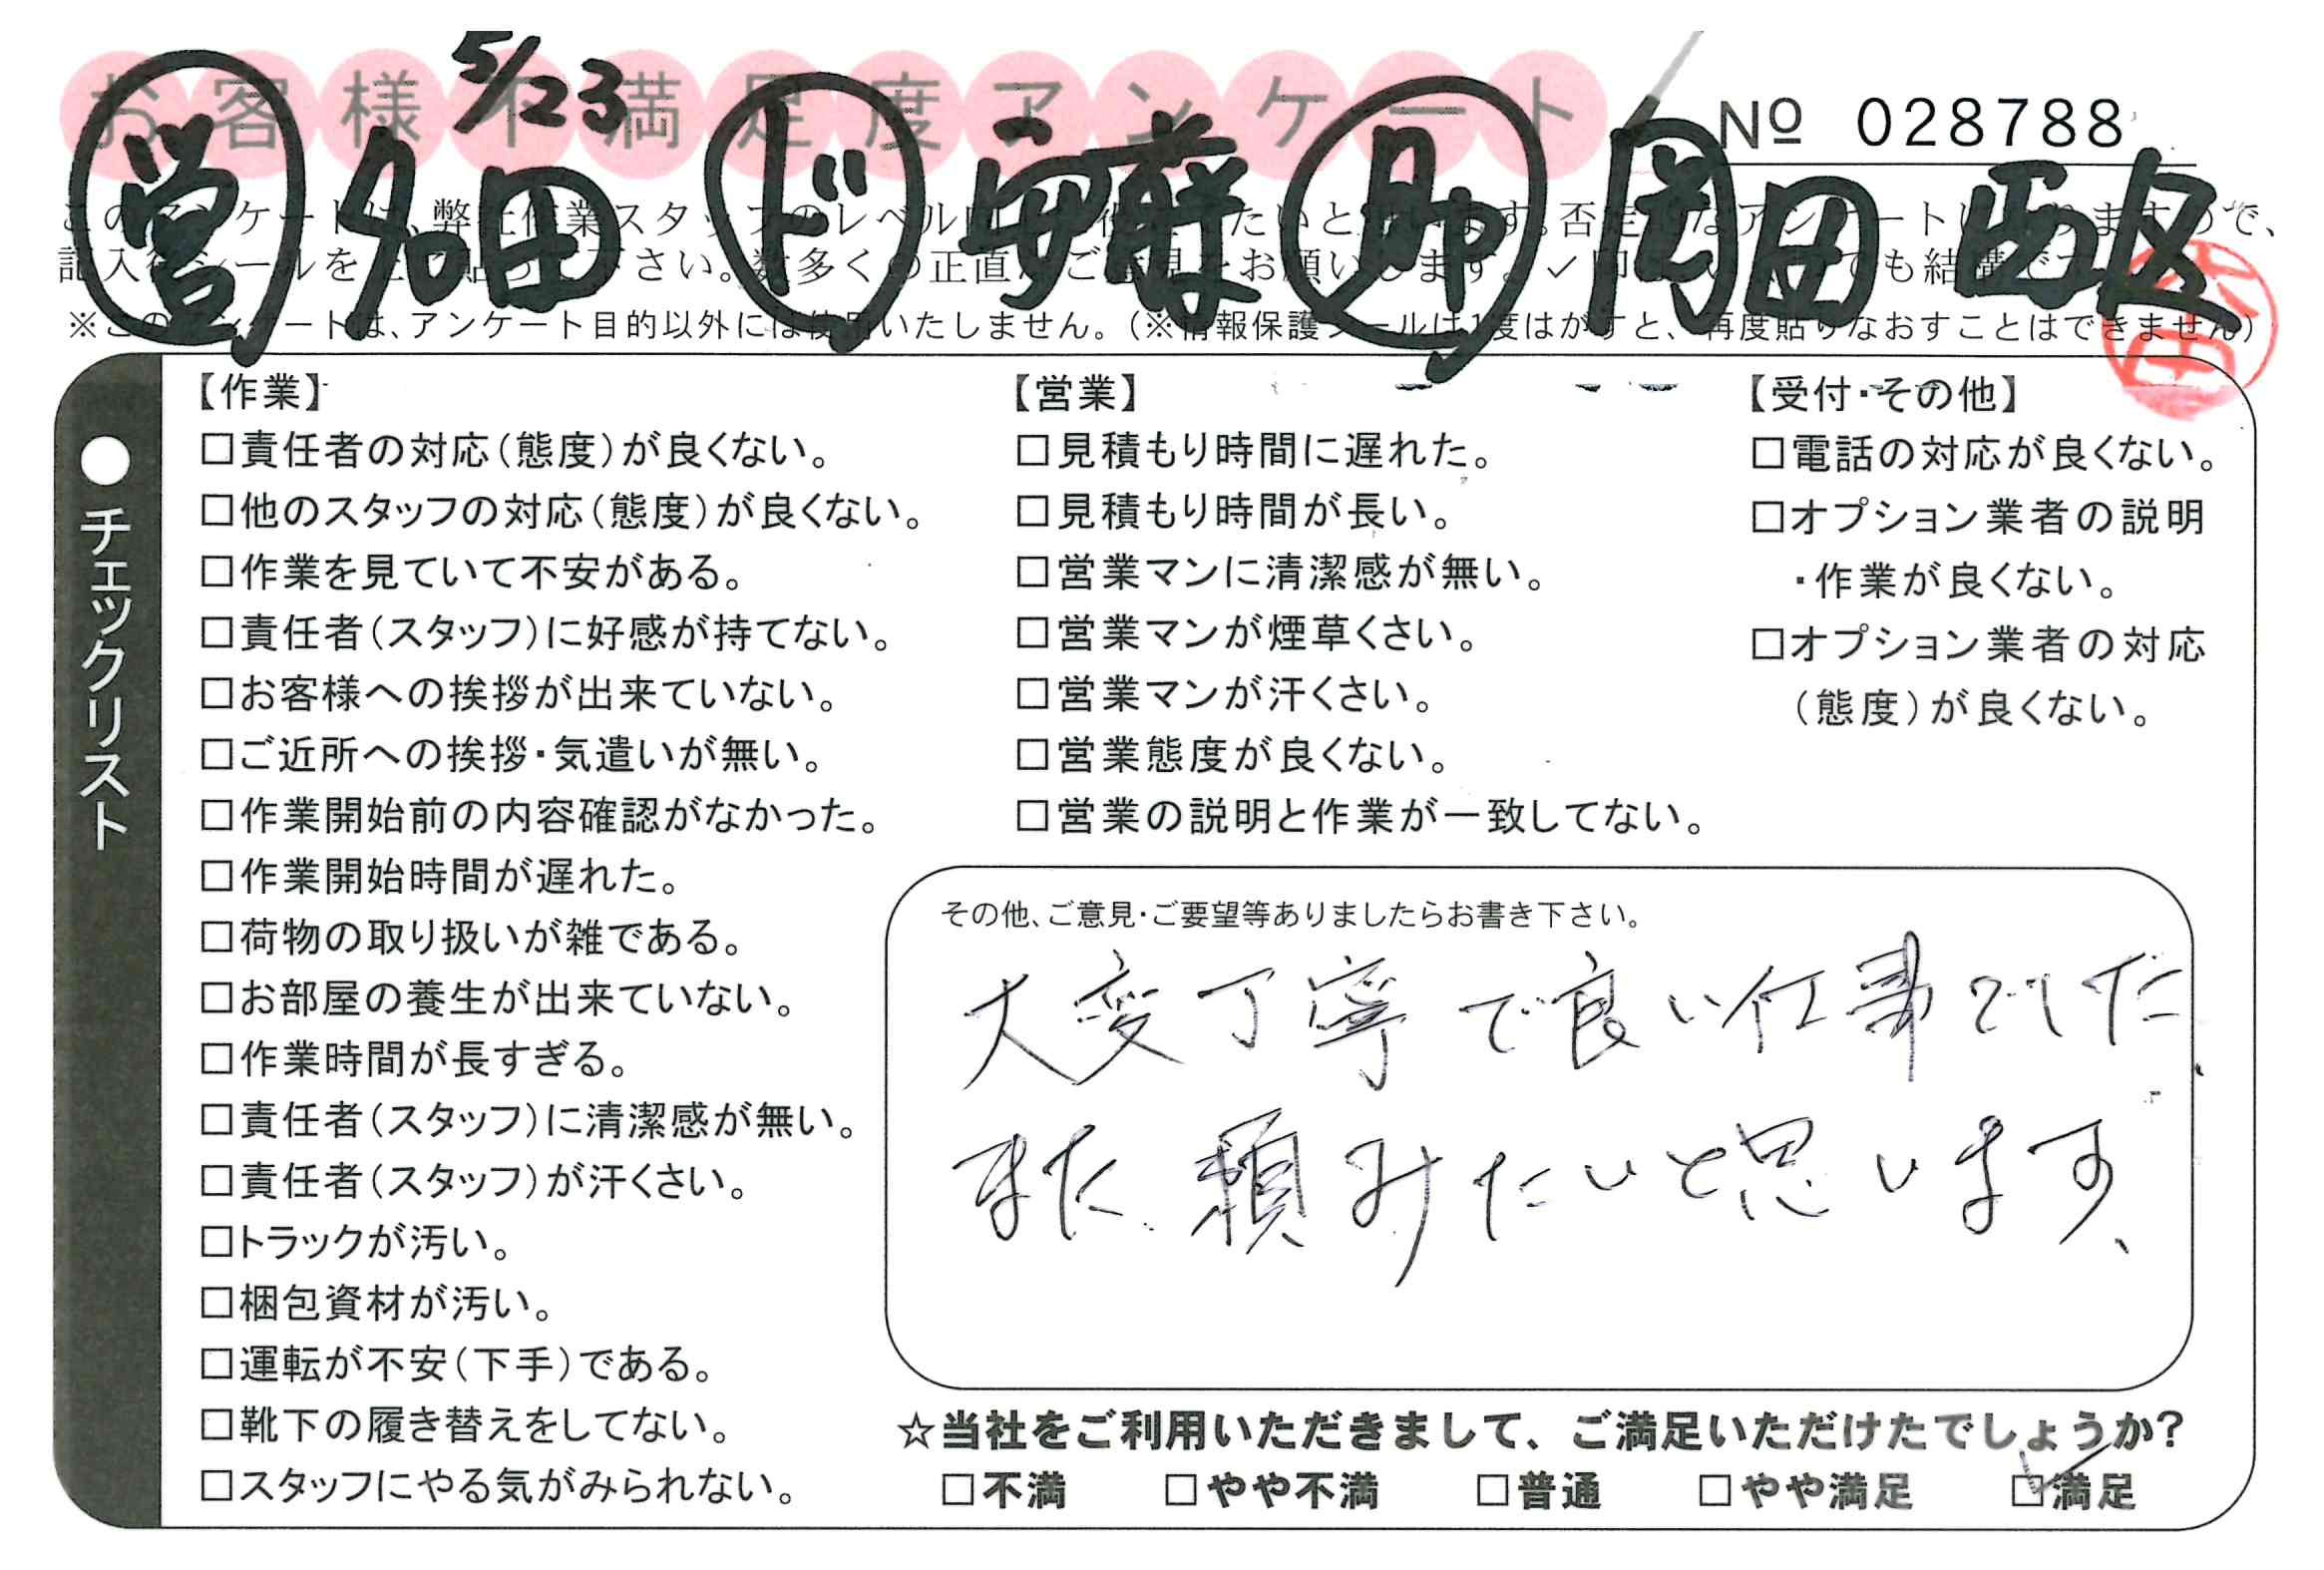 お客様不満足度アンケート
5/23
No 028788
営 多田 ド 安藤 助 岡田 西区
※このアンケートは、アンケート目的以外には使用いたしません。（※情報保護シールは1度はがすと、再度貼りなおすことはできません）
●チェックリスト
【作業】
□責任者の対応（態度）が良くない。
□他のスタッフの対応（態度）が良くない。
□作業を見ていて不安がある。
□責任者（スタッフ）に好感が持てない。
□お客様への挨拶が出来ていない。
□ご近所への挨拶・気遣いが無い。
□作業開始前の内容確認がなかった。
□作業開始時間が遅れた。
□荷物の取り扱いが雑である。
□お部屋の養生が出来ていない。
□作業時間が長すぎる。
□責任者（スタッフ）に清潔感が無い。
□責任者（スタッフ）が汗くさい。
□トラックが汚い。
□梱包資材が汚い。
□運転が不安（下手）である。
□靴下の履き替えをしてない。
□スタッフにやる気がみられない。
【営業】
□見積もり時間に遅れた。
□見積もり時間が長い。
□営業マンに清潔感が無い。
□営業マンが煙草くさい。
□営業マンが汗くさい。
□営業態度が良くない。
□営業の説明と作業が一致してない。
【受付・その他】
□電話の対応が良くない。
□オプション業者の説明
・作業が良くない。
□オプション業者の対応
（態度）が良くない。
その他、ご意見・ご要望等ありましたらお書き下さい。
大変丁寧で良い仕事でした、
また頼みたいと思います、
☆当社をご利用いただきまして、ご満足いただけたでしょうか？
□不満 □やや不満 □普通 □やや満足 ☑満足